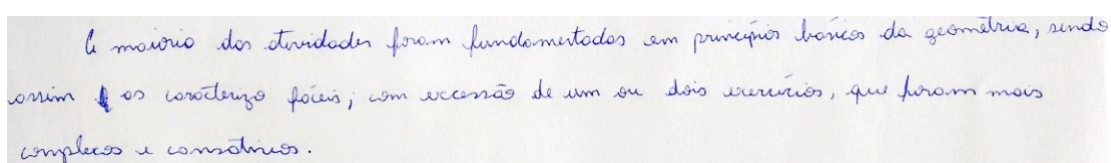 A maioria das atividades foram fundamentados em princípios básicos da geométria, sendo
assim as caracterizo fáceis; com excessão de um ou dois exercícios, que foram mais
complexos e cansativos.